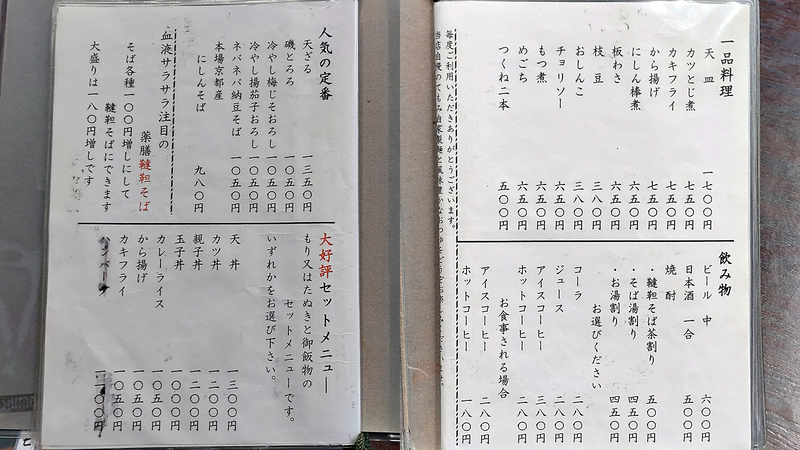 一品料理
天皿 一七〇〇円
カツとじ煮 七五〇円
カキフライ 七五〇円
から揚げ 七五〇円
にしん棒煮 六五〇円
板わさ 六五〇円
枝豆 三八〇円
おしんこ 三八〇円
チョリソー 六五〇円
もつ煮 六五〇円
めごち 六五〇円
つくね二本 五〇〇円
飲み物
ビール 中 六〇〇円
日本酒 一合 五〇〇円
焼酎
・韃靼そば茶割り 五〇〇円
・そば湯割り 四五〇円
・お湯割り 四五〇円
お選びください
コーラ 二八〇円
ジュース 二八〇円
アイスコーヒー 三八〇円
ホットコーヒー 二八〇円
お食事される場合
アイスコーヒー 二八〇円
ホットコーヒー 一八〇円
毎度ご利用いただきありがとうございます。
当店自慢の
人気の定番
天ざる 一三五〇円
磯とろろ 一〇五〇円
冷やし梅じそおろし 一〇五〇円
冷やし揚茄子おろし 一〇五〇円
ネバネバ納豆そば 一〇五〇円
本場京都産
にしんそば 九八〇円
血液サラサラ注目の
薬膳韃靼そば
そば各種一〇〇円増しにして
韃靼そばにできます
大盛りは一八〇円増しです
大好評セットメニュー
もり又はたぬきと御飯物の
セットメニューです。
いずれかをお選び下さい。
天丼 一三〇〇円
カツ丼 一二〇〇円
親子丼 一二〇〇円
玉子丼 一〇〇〇円
カレーライス 一〇五〇円
から揚げ 一〇五〇円
カキフライ 一〇五〇円
ハンバーグ 一一〇〇円